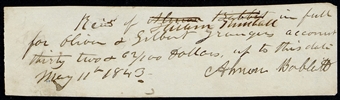 Recd of Hiram Kimball in full
for Oliver & Gilbert Grangers account
thirty two & 62/100 Dollars, up to this date
May 11th 1843.
Almon Babbitt